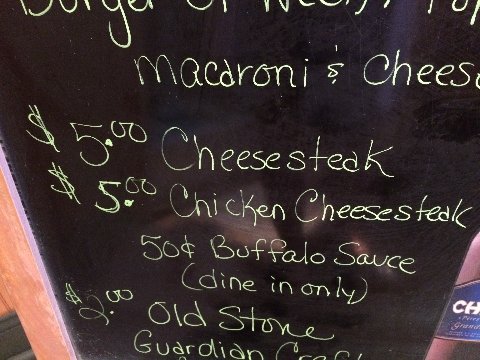 Burger of Week
Macaroni & Cheese
$5.00 Cheesesteak
$5.00 Chicken Cheesesteak
50¢ Buffalo Sauce
(dine in only)
$2.00 Old Stone
Guardian Craft
CH